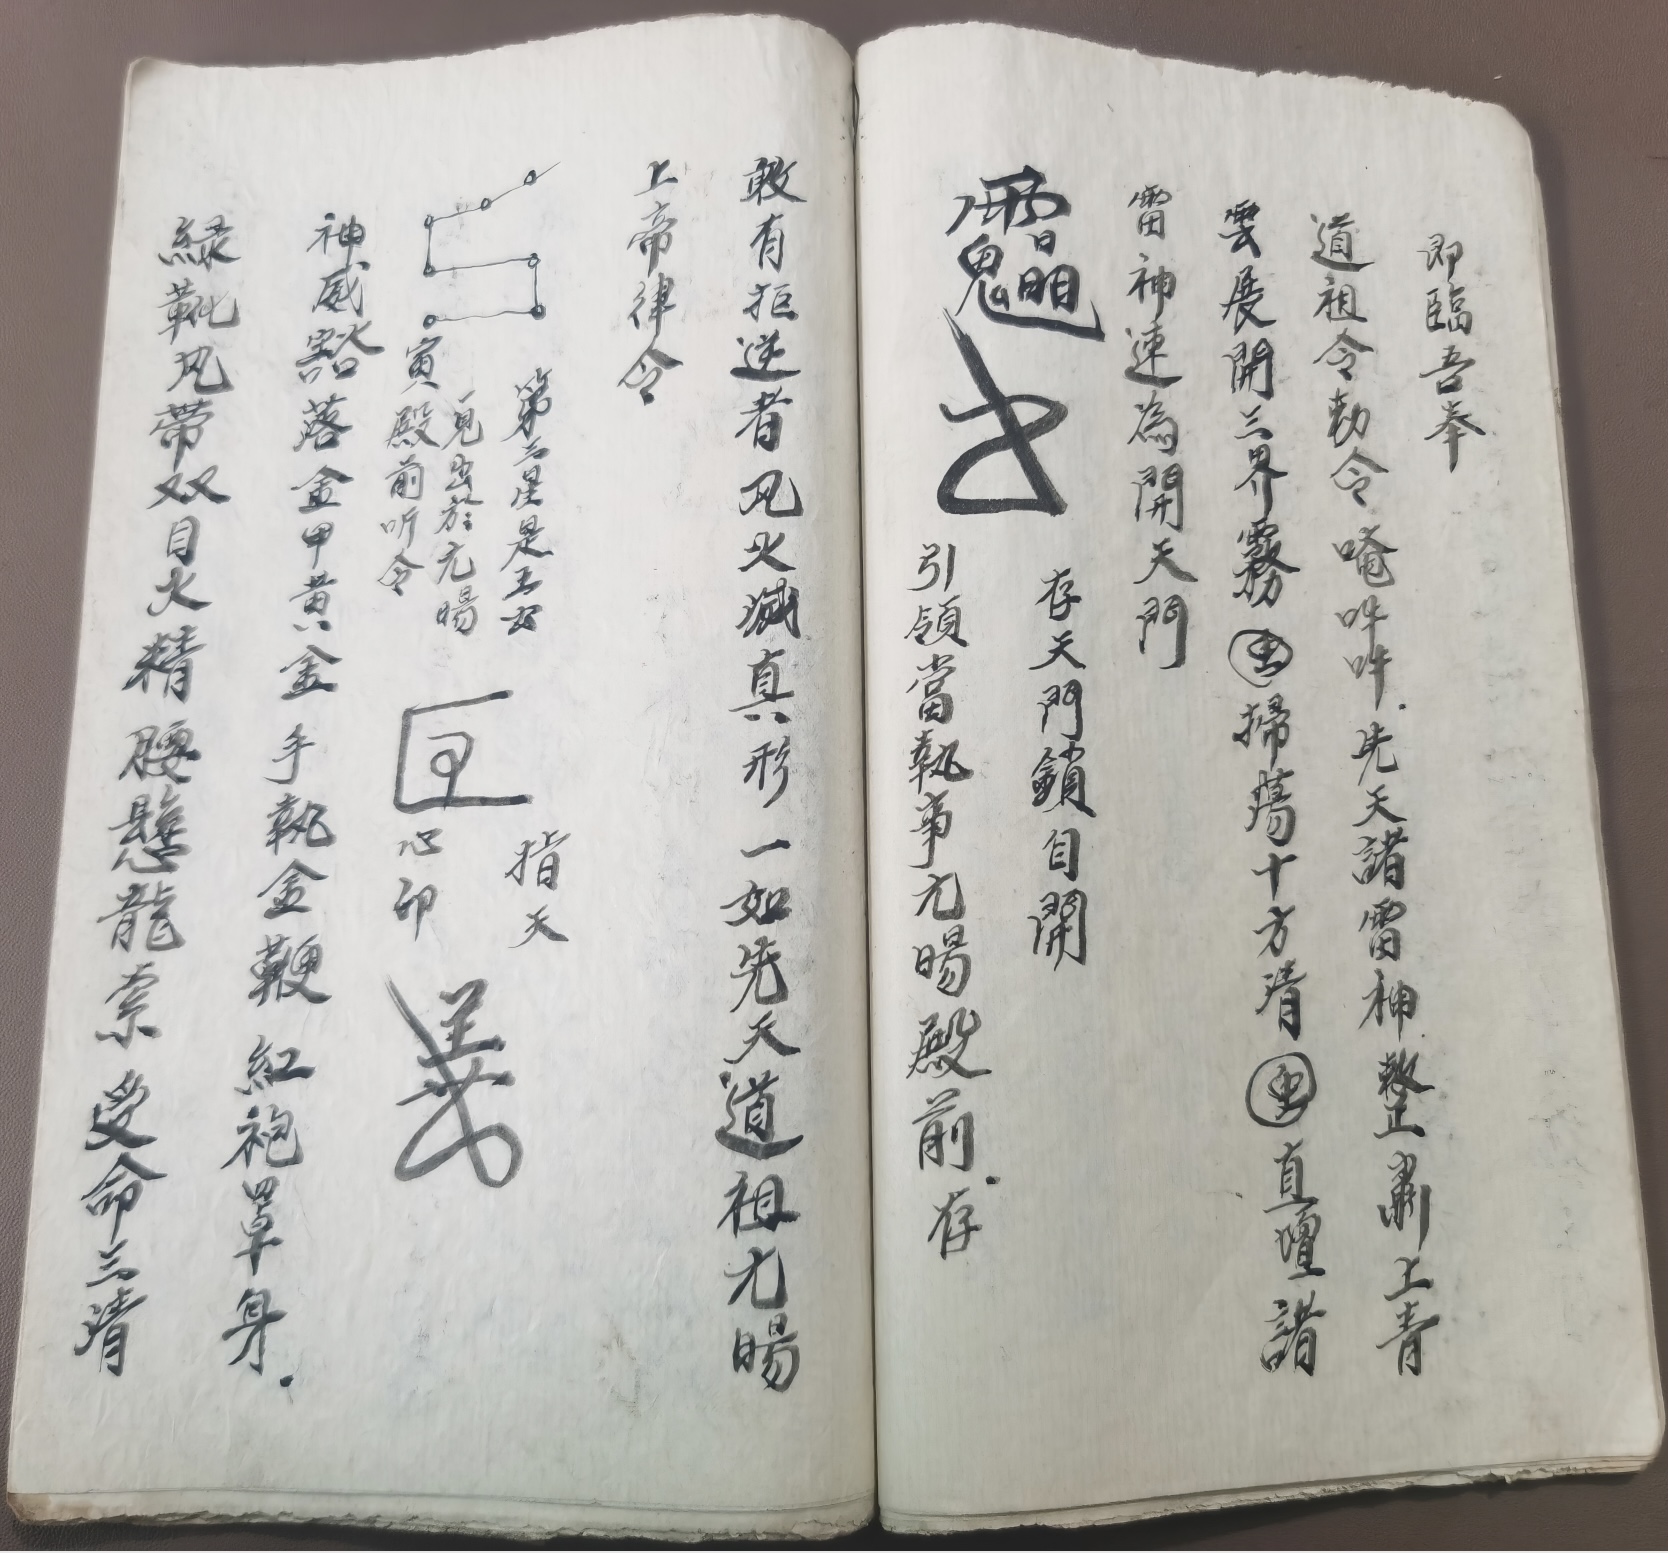 即臨吾奉
道祖令勅令唵吽吽．先天諸雷神整肅上青
雲展開三界霧掃蕩十方清直壇諸
雷神速為開天門
存天門鎖自開
引領當執事元暘殿前．存
敢有拒逆者风火滅真形一如先天道祖元暘
上帝律令
第三星是玉女
見出於元暘
寅殿前听令
指天
心印
神威豁落金甲黄金手執金鞭紅袍罩身．
緑靴风帶双目火精腰懸龍索受命三清